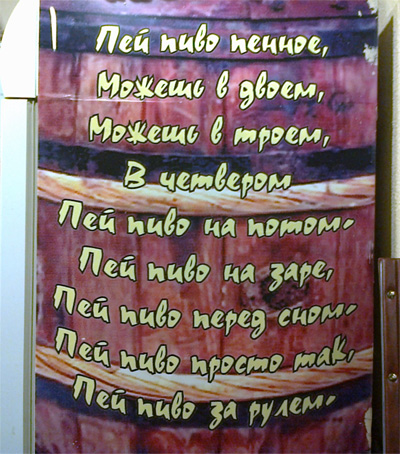 Пей пиво пенное,
Можешь в двоем,
Можешь в троем,
В четвером
Пей пиво на потом.
Пей пиво на заре,
Пей пиво перед сном.
Пей пиво просто так,
Пей пиво за рулем.